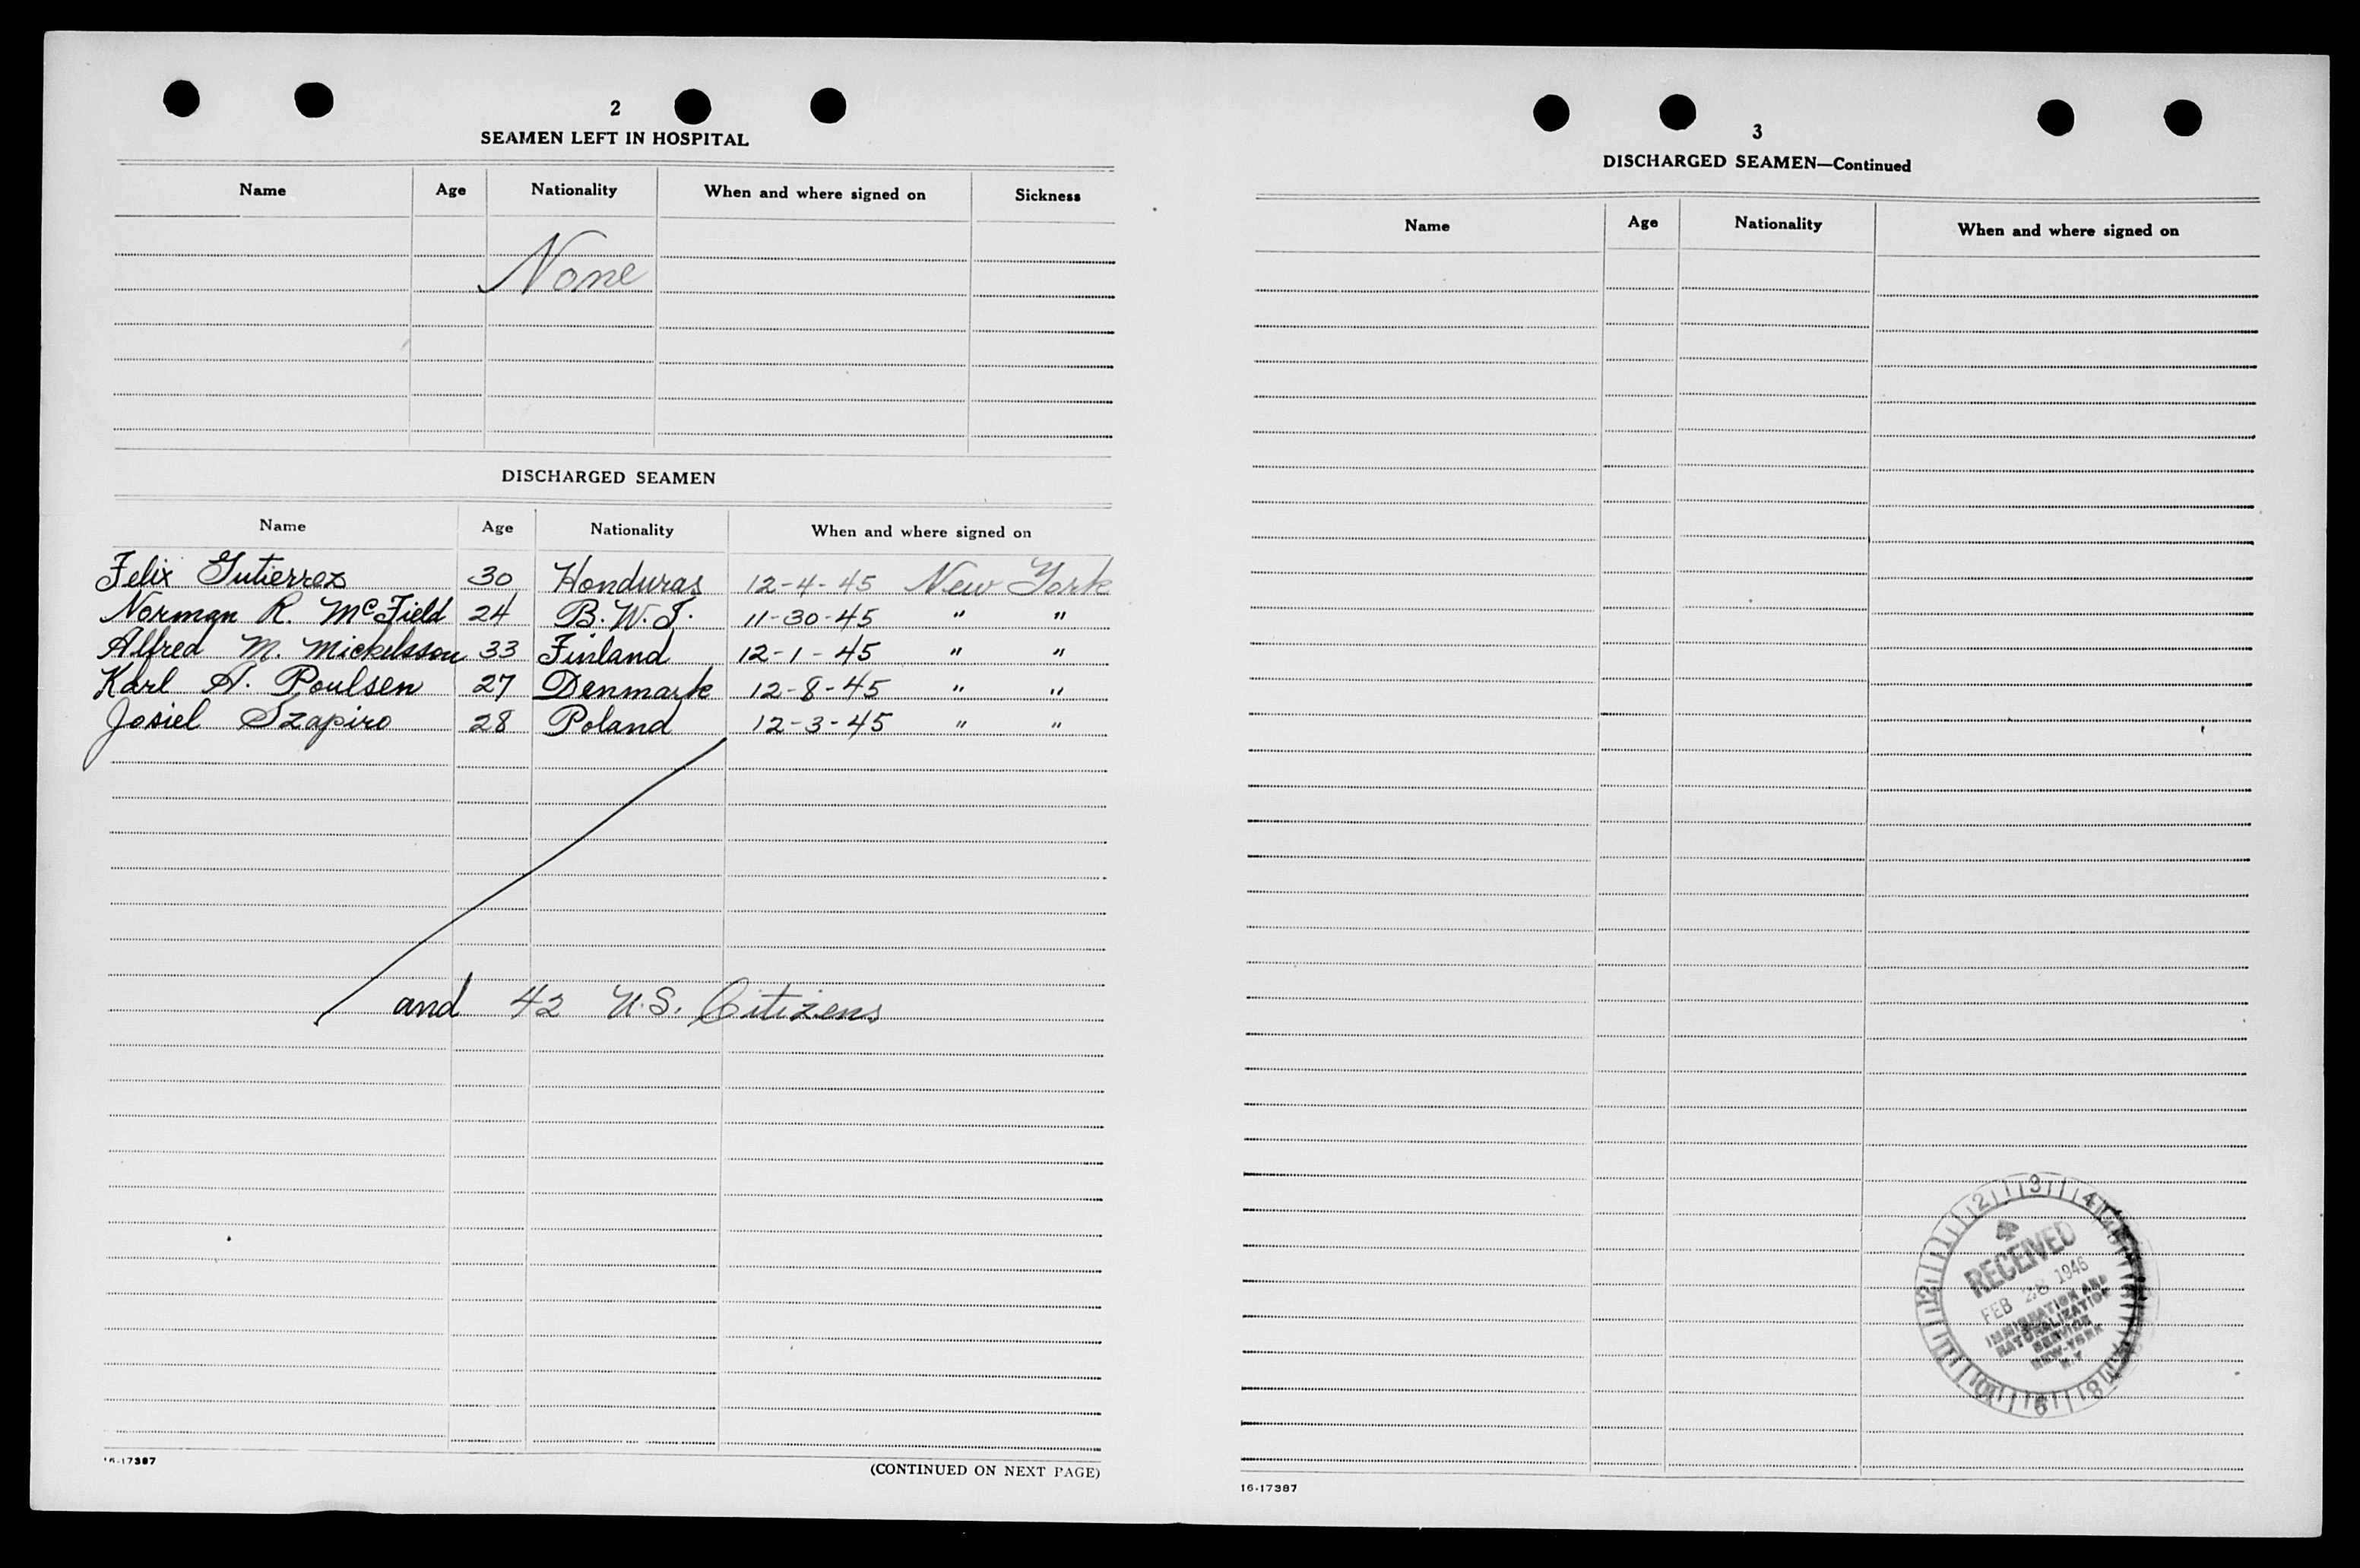 2
SEAMEN LEFT IN HOSPITAL
Name Age Nationality When and where signed on Sickness
None
DISCHARGED SEAMEN
Name Age Nationality When and where signed on
Felix Gutierrez 30 Honduras 12-4-45 New York
Norman R. McField 24 B.W.I. 11-30-45 " "
Alfred M. Mickelsson 33 Finland 12-1-45 " "
Karl A. Poulsen 27 Denmark 12-8-45 " "
Josiel Szapiro 28 Poland 12-3-45 " "
and 42 U.S. Citizens
16-17387
(CONTINUED ON NEXT PAGE)
3
DISCHARGED SEAMEN—Continued
Name Age Nationality When and where signed on
RECEIVED
FEB 1946
IMMIGRATION AND
NATURALIZATION
SERVICE
NEW-YORK
N.Y
16-17387